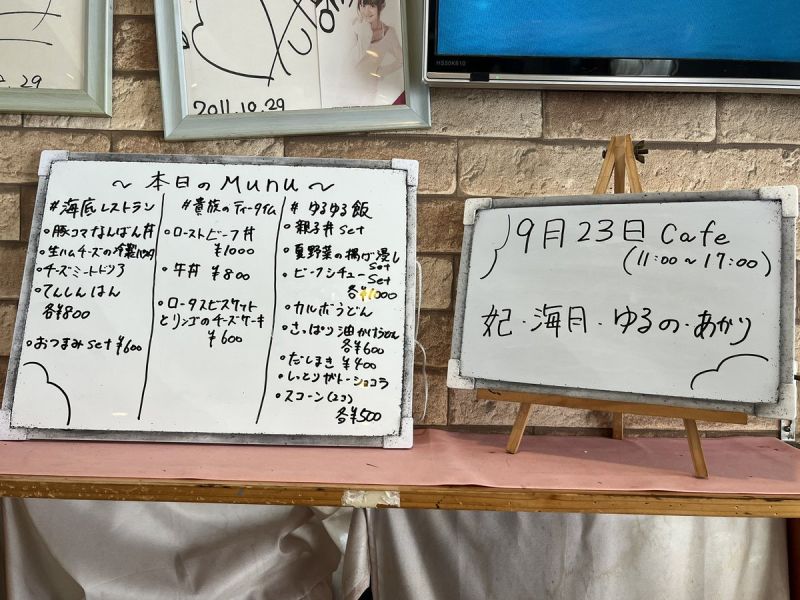 0.29
2011.10.29
HS50K610
～ 本日の Munu ～
#海底レストラン
・豚コマなんばん丼
・生ハムチーズの冷製パスタ
・チーズミートドリア
・てんしんはん
各¥800
・おつまみ set ¥600
#貴族のティータイム
・ローストビーフ丼
¥1000
・牛丼 ¥800
・ロータスビスケット
とリンゴのチーズケーキ
¥600
#ゆるゆる飯
・親子丼 set
・夏野菜の揚げ浸し
set
・ビーフシチュー set
各¥1000
・カルボうどん
・さっぱり油かけうどん
各¥600
・だしまき ¥400
・しっとりガトーショコラ
・スコーン(2コ)
各¥500
9月23日 Cafe
(11:00～17:00)
妃・海月・ゆるの・あかり